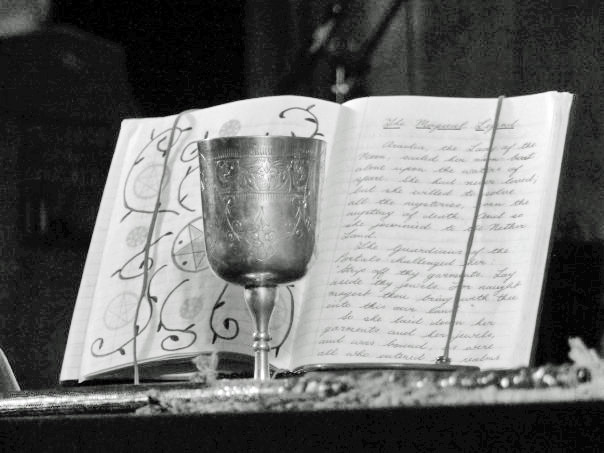 The Magical Legend
Aradia, the Lady of the
Moon, sailed her moon boat
alone upon the waters of
space. She had never loved,
but she wished to solve
all the mysteries, even the
mystery of death. And so
she journeyed to the Nether
Land.
The Guardians of the
Portals challenged her.
"Strip off thy garments. Lay
aside thy jewels. For naught
mayest thou bring with thee
into this our land."
So she laid down her
garments and her jewels,
and was bound, as were
all who entered realms